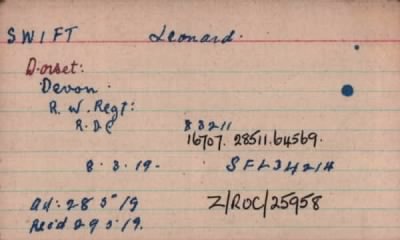 SWIFT Leonard.
Dorset:
Devon.
R. W. Regt:
R. D C 83211
16707. 28511. 64569.
8. 3. 19. SFL34214
Ad: 28 5 19 Z/ROC/25958
Rec'd 29 5 19.